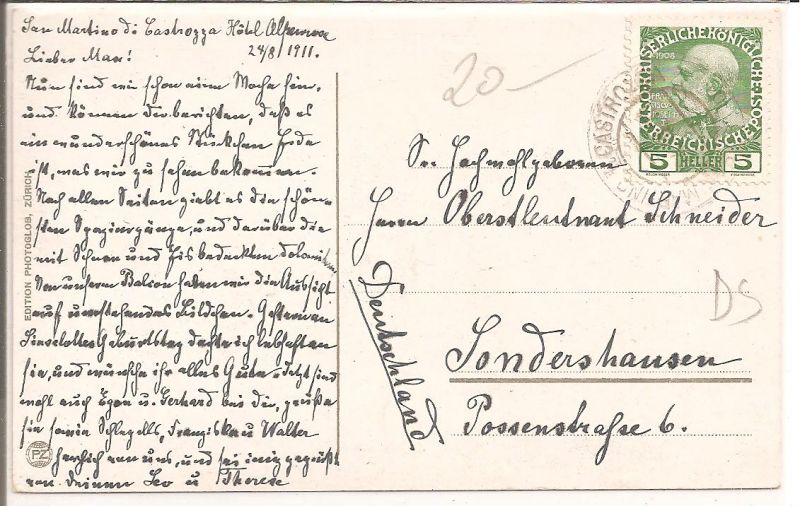 San Martino di Castrozza Hôtel Alpenrose
24/8 1911.
Lieber Max!
Nun sind wir schon eine Woche hier,
und können dir berichten, daß es
ein wunderschönes Stückchen Erde
ist, was wir zu sehen bekommen.
Nach allen Seiten giebt es die schön-
sten Spaziergänge, und darüber die
mit Schnee und Eis bedeckten Dolomiten
Von unserem Balcon haben wir die Aussicht
auf umstehendes Bildchen. Gestern an
Lieselottes Geburtstag dachte ich lebhaft an
sie, und wünsche ihr alles Gute. Jetzt sind
wohl auch Egon u. Gerhard bei dir, grüße
sie sowie Schlegells, Franziska u Walter
herzlich von uns, und sei innig gegrüßt
von deinen Leo u Therese
EDITION PHOTOGLOB, ZÜRICH
PZ
20-
KAISERLICHE KÖNIGLICHE
ÖSTERREICHISCHE
1908
5 HELLER 5
CASTRO
Sr. Hochwohlgeboren
Herrn Oberstleutnant Schneider
DS
Deutschland
Sondershausen
Possenstraße 6.